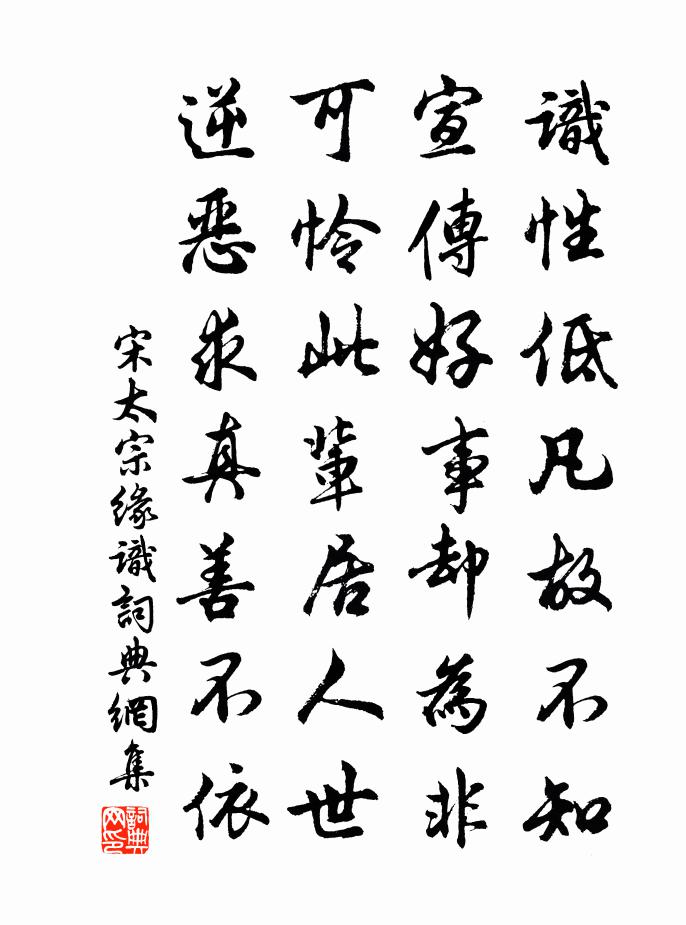 識性低凡故不知
宣傳好事却為非
可怜此輩居人世
逆惡求真善不依
宋太宗緣識詞典網集
詞典网印